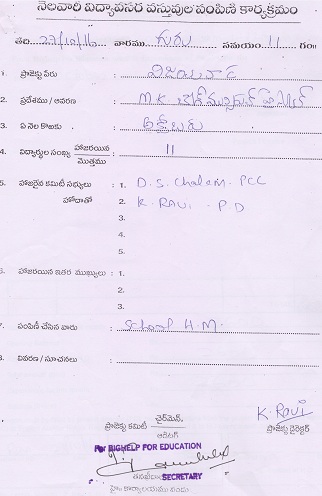 నెలవారీ విద్యావసర వస్తువుల పంపిణీ కార్యక్రమం
తేది 27/10/16 వారము గురు సమయం 11 గం॥
1. ప్రాజెక్టు పేరు విజయవాడ
2. ప్రదేశము / ఆవరణ M K
3. ఏ నెల కొఱకు అక్టోబరు
4. విద్యార్థుల సంఖ్య హాజరయిన / మొత్తము 11
5. హాజరైన కమిటీ సభ్యులు : 1. D. S. Chalam. PCC
హోదాతో 2. K. RAVI - P D
3.
4.
5.
6. హాజరయిన ఇతర ముఖ్యులు : 1.
2.
3.
7. పంపిణీ చేసిన వారు School H.M.
8. వివరణ / సూచనలు
ఛైర్మెన్,
ప్రాజెక్టు కమిటీ
ఆడిటర్
K. Ravi
ప్రాజెక్టు డైరెక్టర్
For BIGHELP FOR EDUCATION
SECRETARY
హెం కార్యాలయము నందు